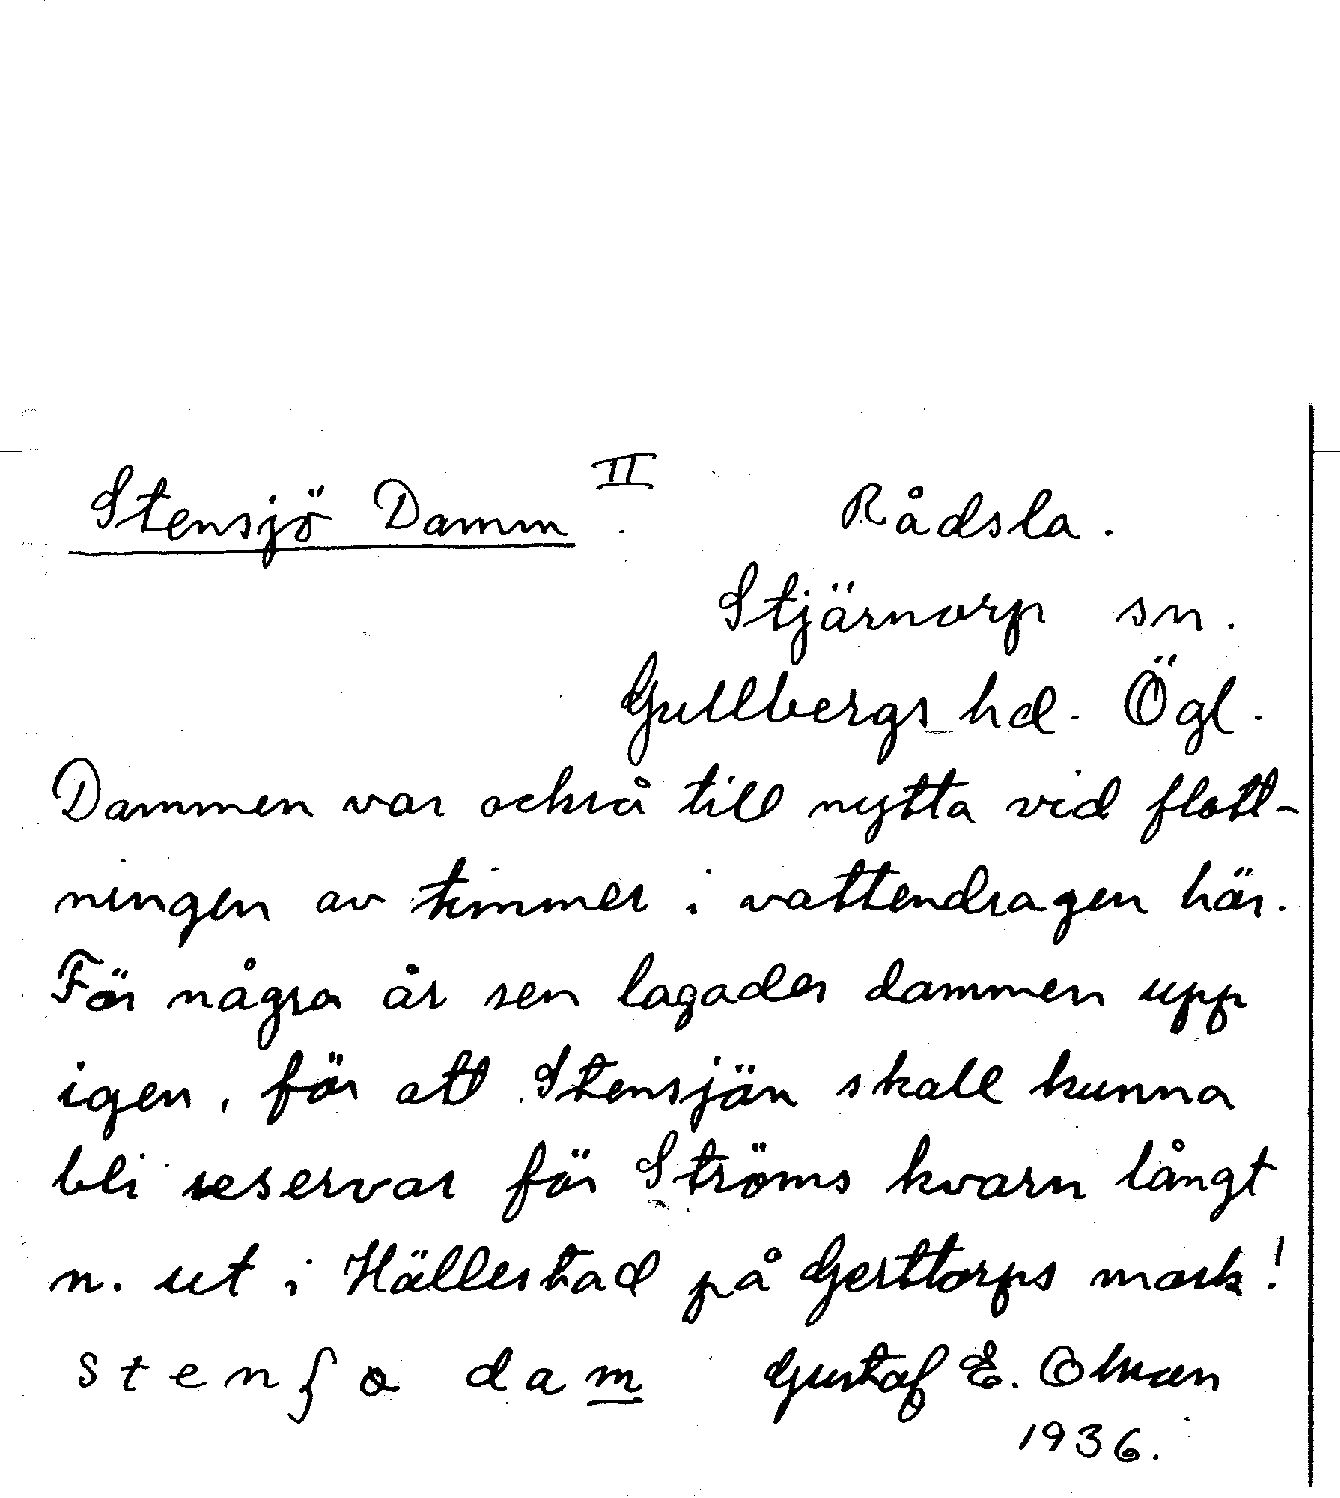 Stensjö Damm II. Rådsla.
Stjärnorp sn.
Gullbergs hd. Ögl.
Dammen var också till nytta vid flott-
ningen av timmer i vattendragen här.
För några år sen lagades dammen upp
igen, för att Stensjön skall kunna
bli reservar för Ströms kvarn långt
n. ut i Hällestad på Gerttorps mark!
stenʃo dam Gustaf E. Olsson
1936.